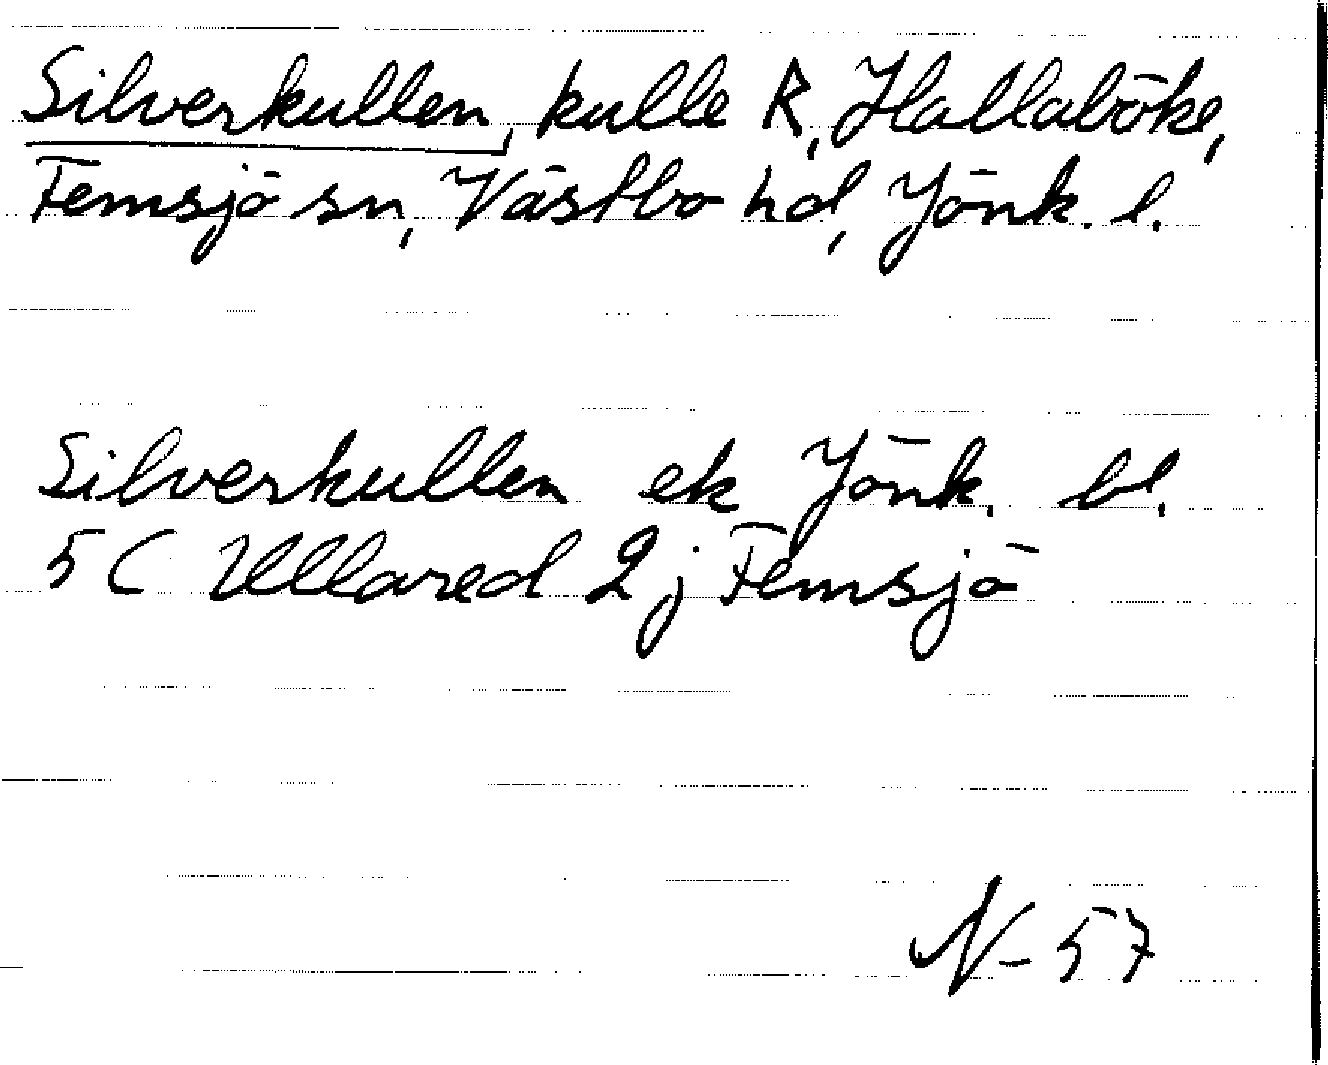 Silverkullen, kulle R, Hallaböke,
Femsjö sn, Västbo hd, Jönk. l.
Silverkullen ek Jönk. bl.
5 C Ullared 2 j Femsjö
N-57